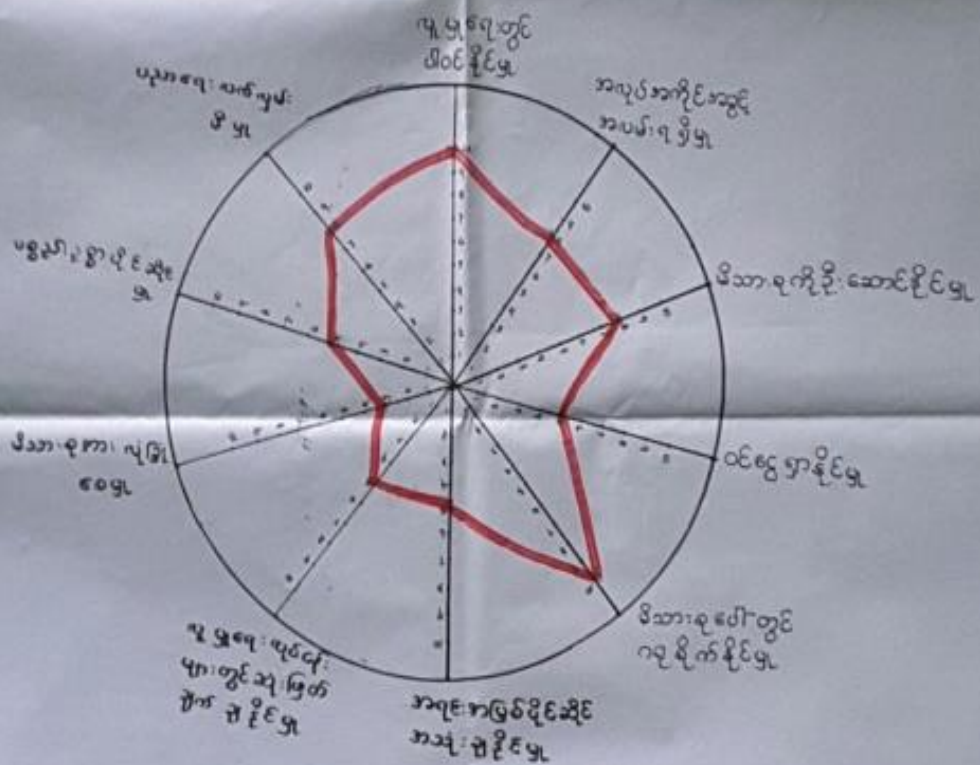 လူမှုရေးတွင်
ပါဝင်နိုင်မှု
အလုပ်အကိုင်အခွင့်
အလမ်းရရှိမှု
မိသားစုကိုဦးဆောင်နိုင်မှု
ဝင်ငွေရှာနိုင်မှု
မိသားစုပေါ်တွင်
ဂရုစိုက်နိုင်မှု
အရင်းအမြစ်ပိုင်ဆိုင်
အသုံးချနိုင်မှု
လူမှုရေးလုပ်ငန်း
များတွင်ဆုံးဖြတ်
ချက်ချနိုင်မှု
မိသားစုအား လုံခြုံ
စေမှု
ပစ္စည်းဥစ္စာပိုင်ဆိုင်
မှု
ပညာရေး လက်လှမ်း
မီမှု